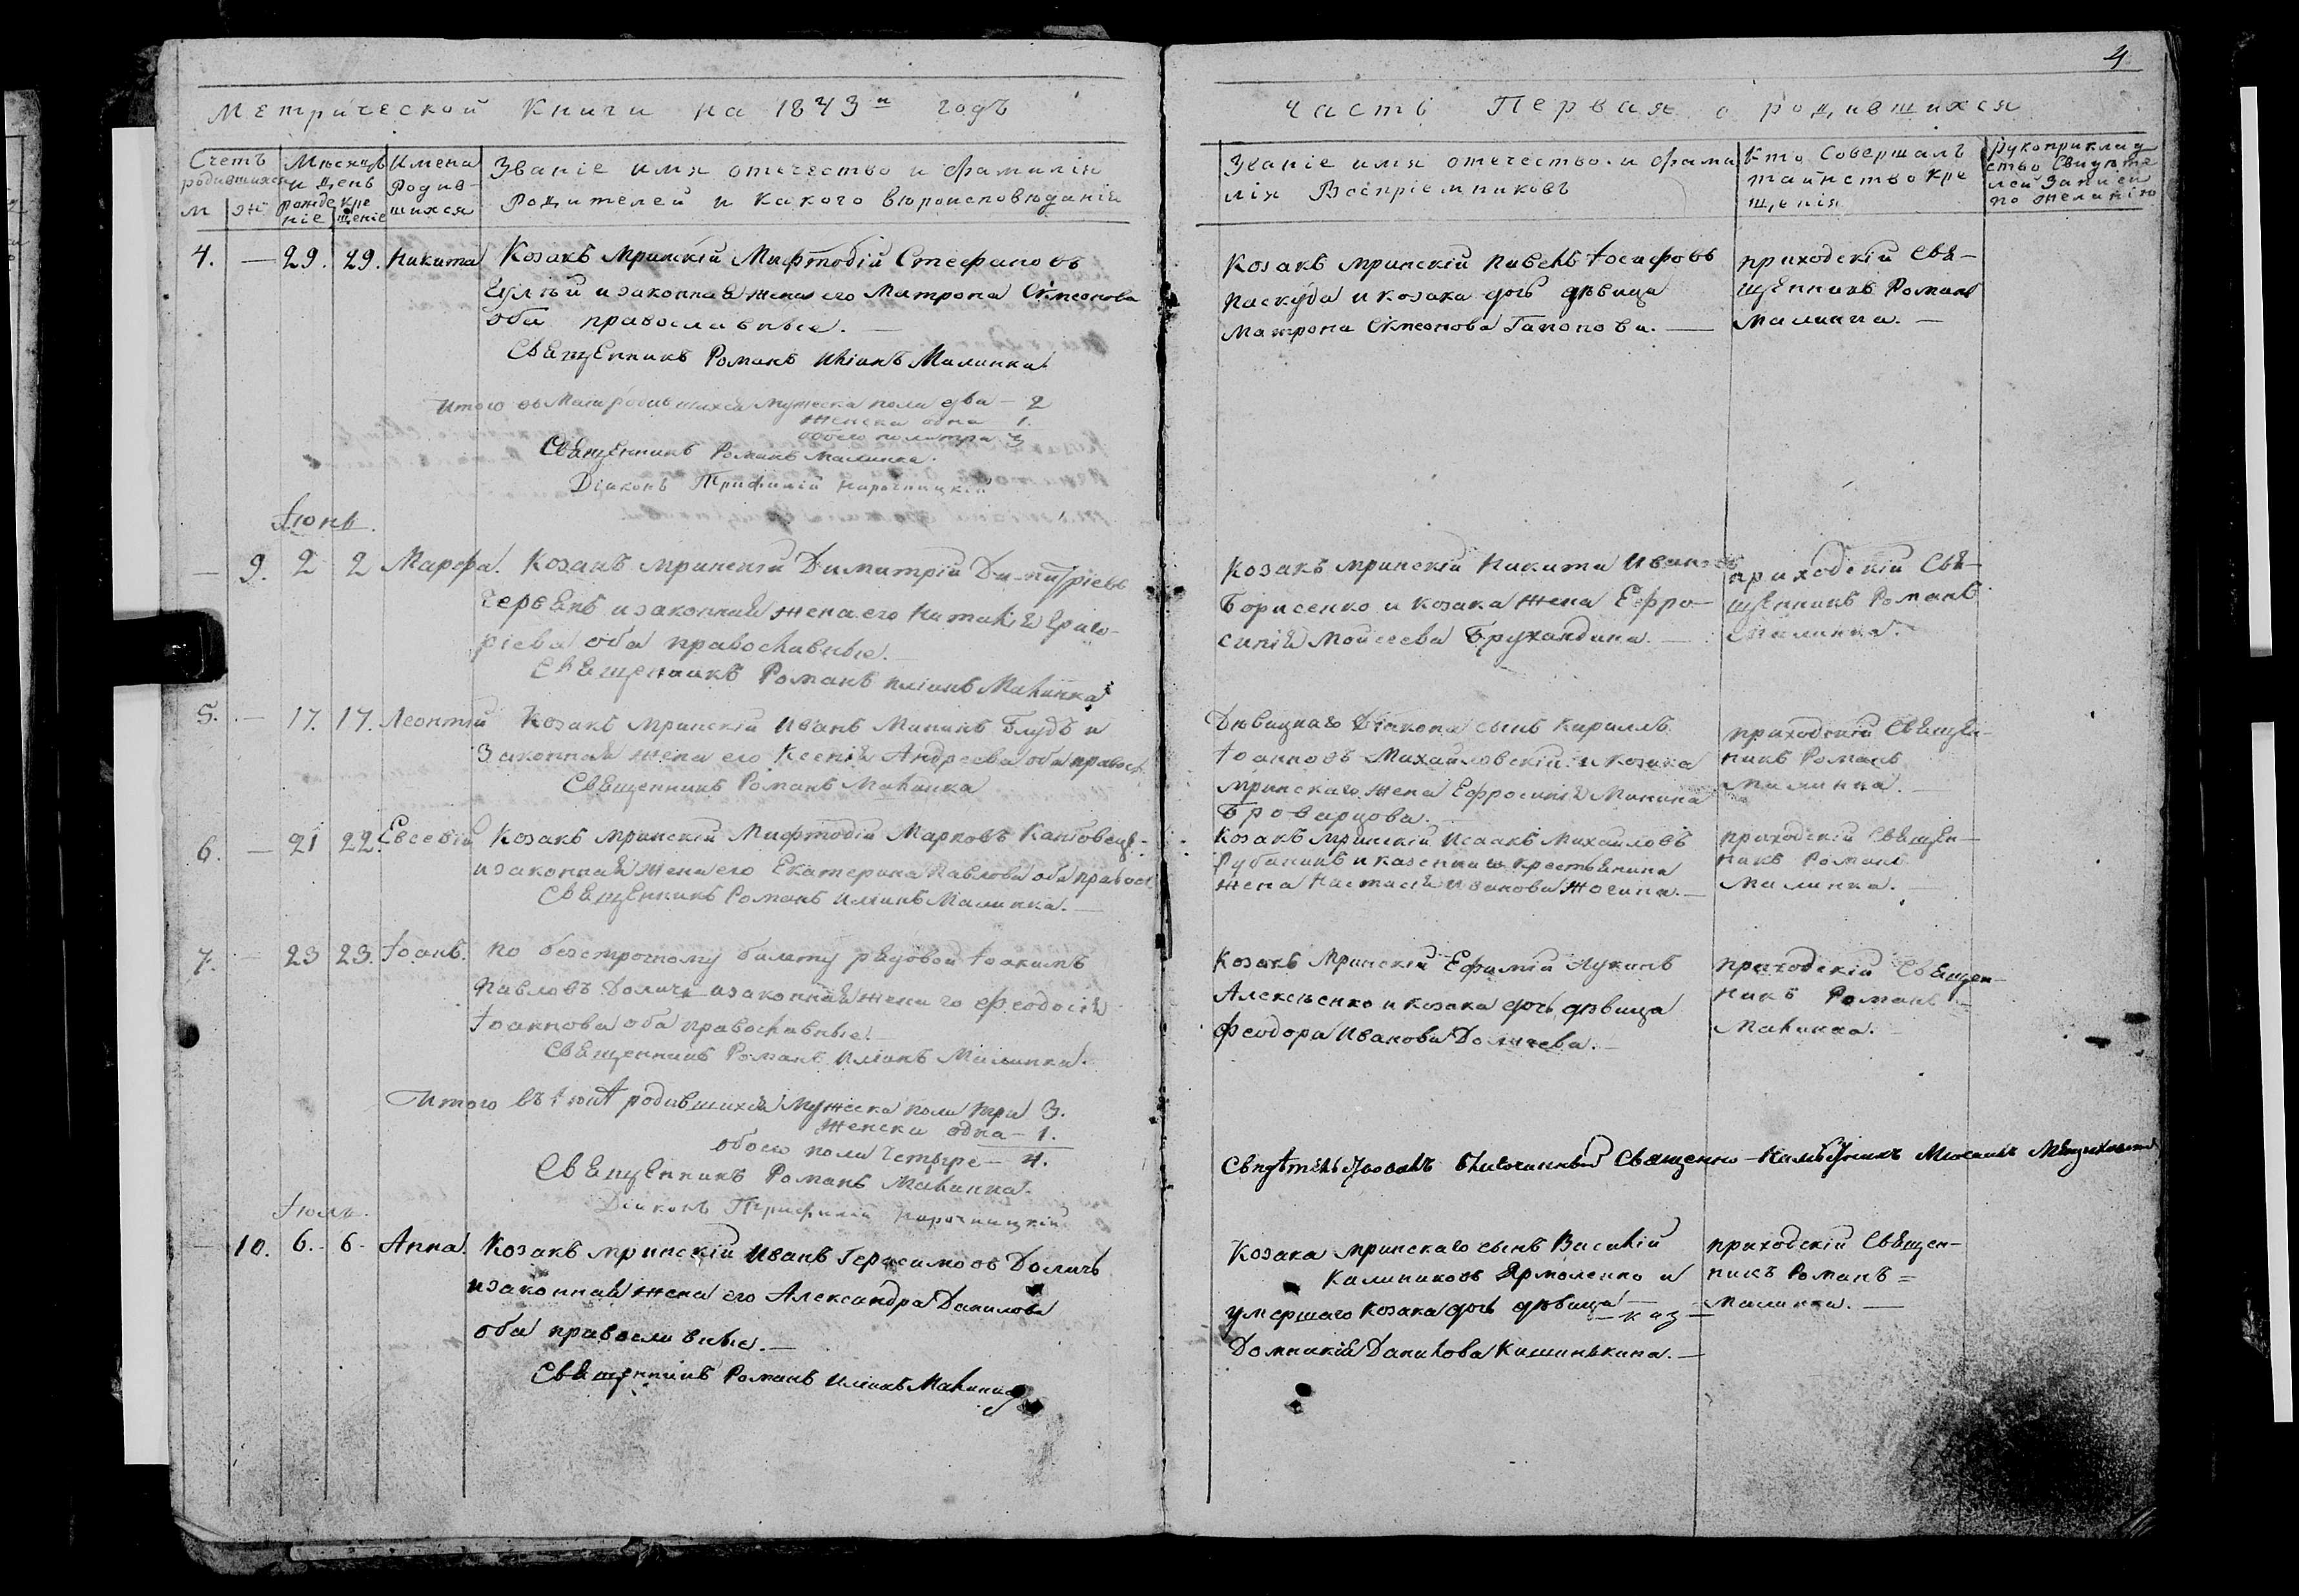 4
Метрической Книги на 1843й годъ
Часть Первая о родившихся
Счетъ родившихся
м
ж
Мѣсяцъ и день
рожде ніе
кре щеніе
Имена Родив- шихся
Званіе имя отечество и фамилія
Родителей и какого вѣроисповѣданія
Званіе имя отечество и фами
лія Воспріемниковъ
Кто Совершалъ
таинство Кре
щенія
рукоприклад
ство Свидѣте
лей Записи
по желанію
4. — 29. 29. Никита
Козакъ мринскій Мифтодій Стефановъ
и законная жена его Матрона Симеонова
оба православные. —
Священникъ Романъ Иліинъ Малинка
Козакъ мринскій Павелъ Іосифовъ
Паскуда и козака дочь дѣвица
Матрона Симеонова Гапонова. —
приходскій Свя-
щенникъ Романъ
Малинка. —
Итого въ Маи родившихся мужеска пола два — 2
женска одна 1.
обоего пола три 3
Священникъ Романъ Малинка.
Діаконъ Трифилій Нарожницкій
Іюнь.
— 9. 2 2 Марфа.
Козакъ мринскій Димитрій Димитріевъ
Червякъ и законная жена его Наталія Григо-
ріева оба православные. —
Священникъ Романъ Иліинъ Малинка
Козакъ мринскій Никита Ивановъ
Борисенко и козака жена Ефро-
синія Моисеева Брухандина. —
приходскій Свя-
щенникъ Романъ
Малинка. —
5. — 17. 17. Леонтій
Козакъ мринскій Иванъ Мининъ Блудъ и
Законная жена его Ксенія Андреева оба правосл.
Священникъ Романъ Малинка
Дѣвицкаго Діакона сынъ Кириллъ
Іоанновъ Михайловскій и козака
мринскаго жена Ефросинія Минина
Броварцова. —
приходскій Священ-
никъ Романъ
Малинка. —
6. — 21 22. Евсевій
Козакъ мринскій Мифтодій Марковъ
и законная жена его Екатерина Павлова оба правосл
Священникъ Романъ Иліинъ Малинка. —
Козакъ мринскій Исаакъ Михайловъ
Рубанинъ и казеннаго крестьянина
жена Настасія Иванова Жогина. —
приходскій Священ-
никъ Романъ
Малинка. —
7. — 23 23. Іоанъ.
По безсрочному билету рядовой Іоакимъ
Павловъ Доличъ и законная жена его Феодосія
Іоаннова оба православные.
Священникъ Романъ Иліинъ Малинка.
Козакъ Мринскій Ефимій Лукинъ
Алексѣенко и козака дочь дѣвица
Феодора Иванова Доличева. —
приходскій Священ-
никъ Романъ —
Малинка. —
Итого въ Іюнѣ родившихся мужеска пола три 3.
женска одна — 1.
обоего пола четыре — 4.
Священникъ Романъ Малинка.
Діаконъ Трифилій Нарожницкій
Свидѣтельствовалъ благочинный Священно-Намѣстникъ
Іюль.
— 10. 6. 6. Анна.
Козакъ мринскій Иванъ Герасимовъ Доличъ
и законная жена его Александра Данилова
оба православные. —
Священникъ Романъ Иліинъ Малинка
Козака мринскаго сынъ Василій
Калиниковъ Ярмоленко и
умершаго козака дочь дѣвица —
Домникія Данилова Кишинькина. —
приходскій Священ-
никъ Романъ =
Малинка. —